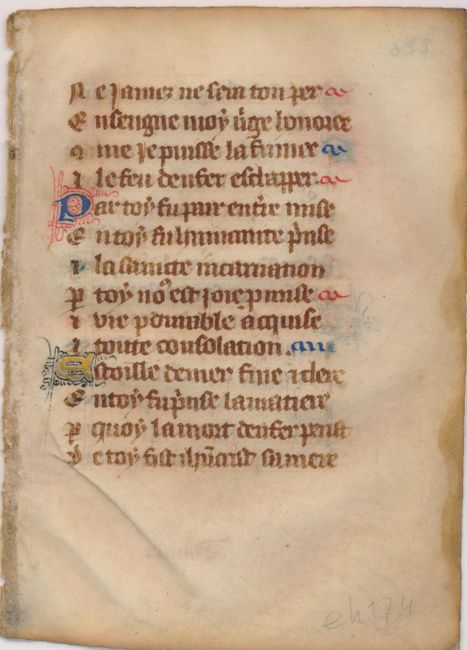 N e Jamez ne sera ton per
E nseugne moy v̄ge honoree
Q me je puisse la fumer
I le feu denfer eschapper
Par toy fu paix entre mise
E n toy fu humanite p̄nse
I la saincte incarnation
P toy no9 est joie pmise
I vie pdurable acquise
I toute consolation.
Estoille de mer fine i clere
E n toy fu p̄nse la matiere
P quoy la mort denfer
D e toy fist ih̄ucrist sa mere
eh 174